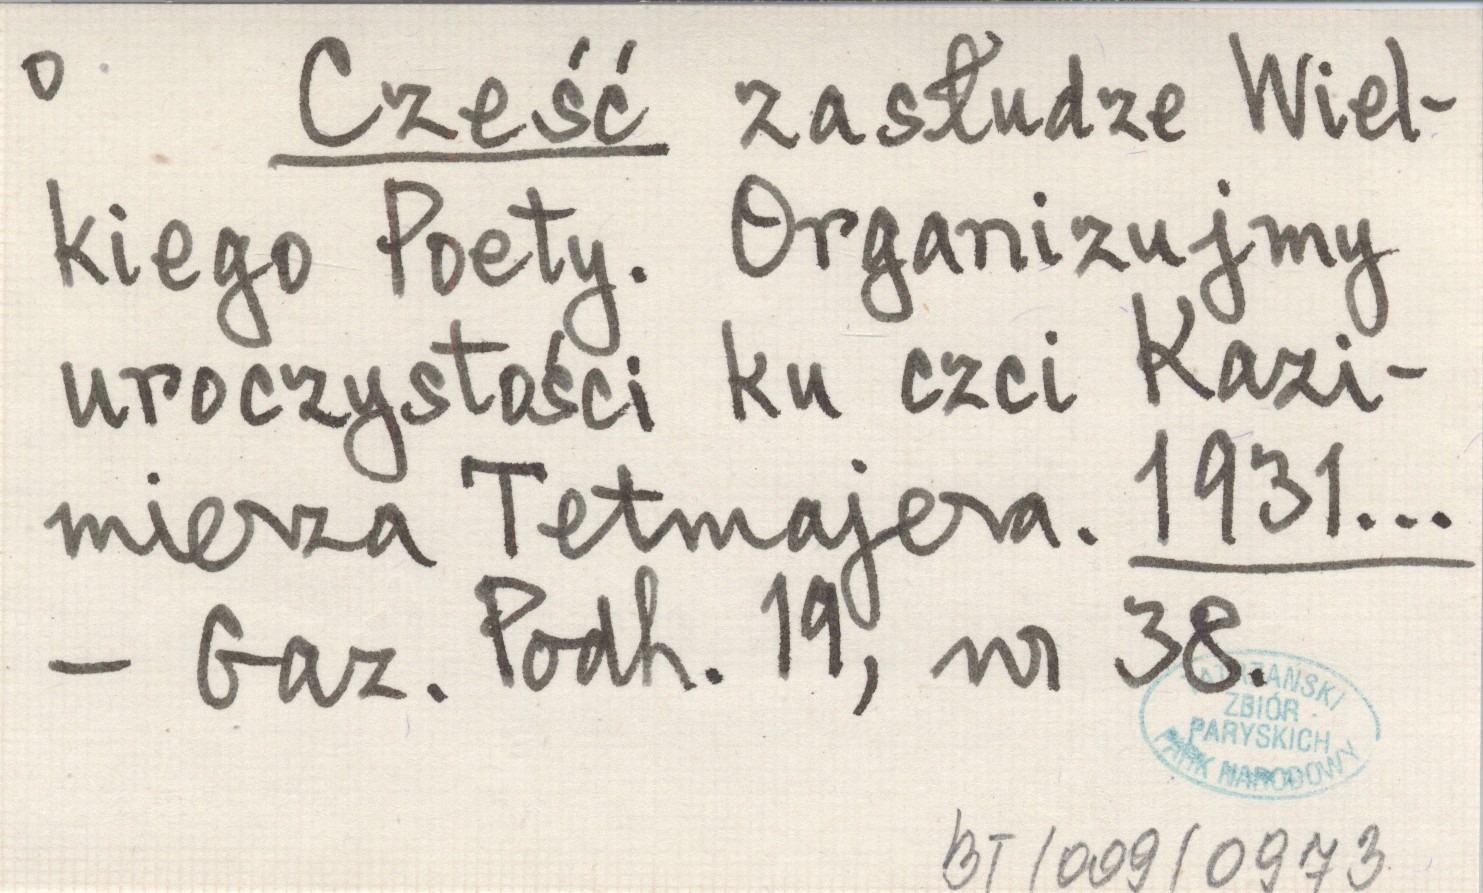 o Cześć zasłudze Wiel-
kiego Poety. Organizujmy
uroczystości ku czci Kazi-
mierza Tetmajera. 1931...
– Gaz. Podh. 19, nr 38.
TATRZAŃSKI
ZBIÓR
PARYSKICH
PARK NARODOWY
BT/009/0973